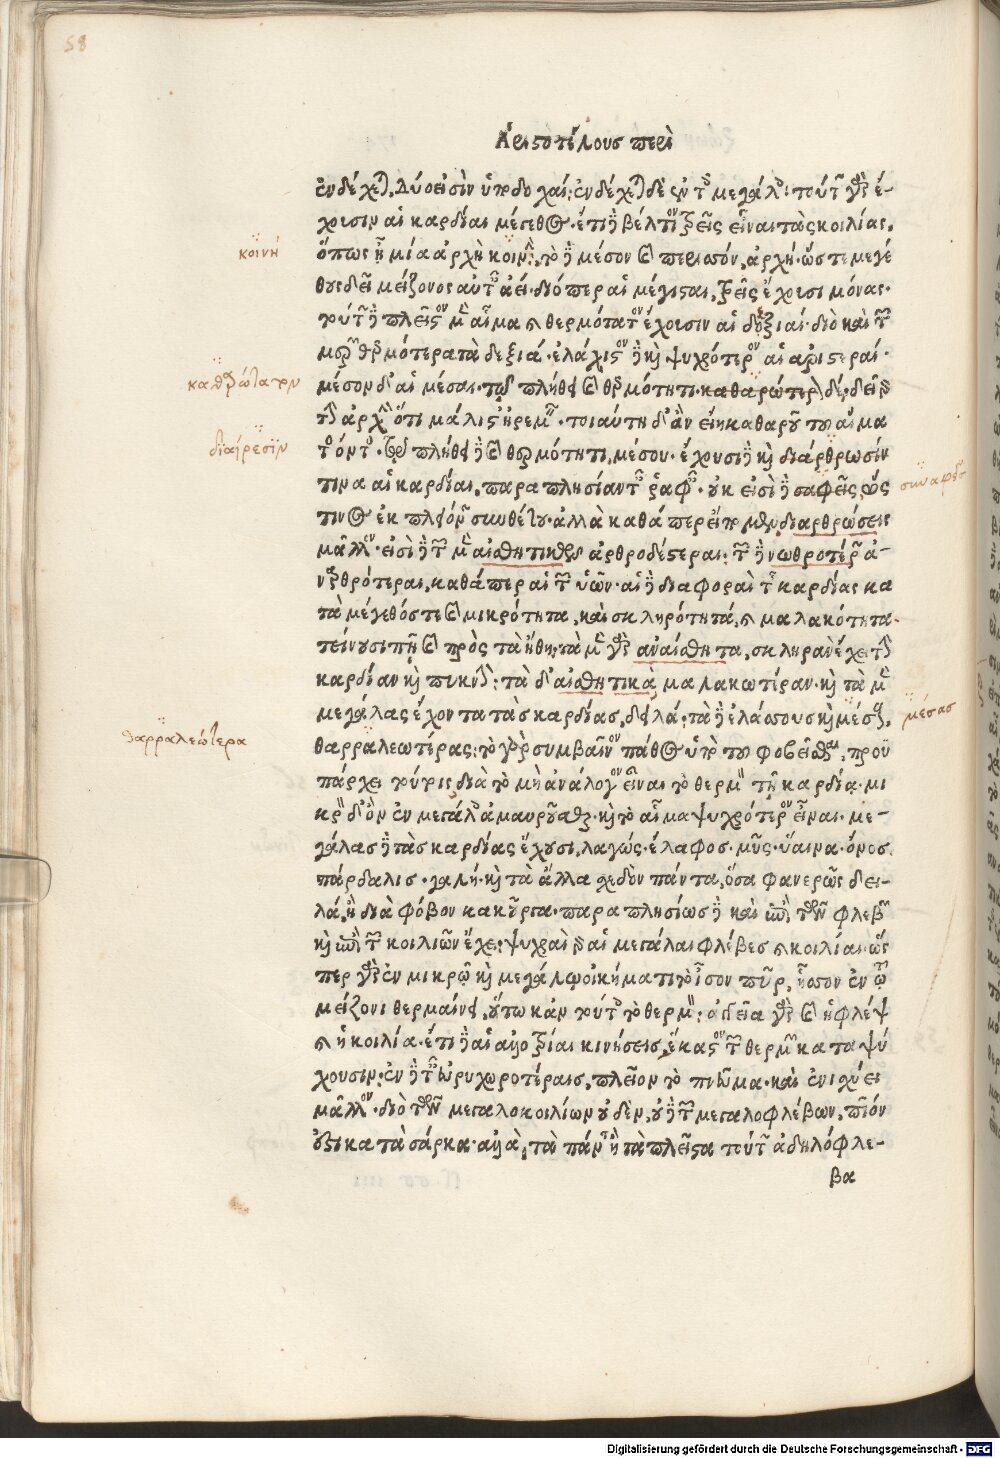 58
Ἀριστοτέλους περὶ
ἐνδέχεται, δύο εἰσὶν ὑποδοχαί· ἐνδέχεται δὲ ἐν τοῖς μεγάλοις· τούτων γὰρ ἔ-
χουσιν αἱ καρδίαι μέγεθος. ἔτι δὲ βέλτιον τρεῖς εἶναι τὰς κοιλίας,
ὅπως ᾖ μία ἀρχὴ κοινή, τὸ δὲ μέσον καὶ περισσόν, ἀρχή· ὥστε μεγέ
κοινή
θους δεῖ μείζονος αὐτοῖς ἀεί· διόπερ αἱ μέγισται, τρεῖς ἔχουσι μόναι.
τούτων δὲ πλεῖστον μὲν αἷμα καὶ θερμότατον ἔχουσιν αἱ δεξιαί· διὸ καὶ τῶν
θερμότερα τὰ δεξιά· ἐλάχιστον δὲ καὶ ψυχρότερον αἱ ἀριστεραί.
μέσον δ' αἱ μέσαι τῷ πλήθει καὶ θερμότητι· καθαρώτερον δέ· δεῖ γὰρ
καθαρώτατον
τὴν ἀρχὴν ὅτι μάλιστ' ἠρεμεῖν· τοιαύτη δ' ἂν εἴη καθαροῦ τοῦ αἵματος
διαίρεσιν
ὄντος· τῷ πλήθει δὲ καὶ θερμότητι, μέσου. ἔχουσι δὲ καὶ διάρθρωσίν
τινα αἱ καρδίαι, παραπλησίαν ταῖς ῥαφαῖς· οὐκ εἰσὶ δὲ σαφεῖς, ὥς
συναφεῖς
τινος ἐκ πλειόνων συνθέτου· ἀλλὰ καθάπερ εἴπομεν, διαρθρώσει
μᾶλλον. εἰσὶ δὲ τῶν μὲν αἰσθητικῶν ἀρθρωδέστεραι· τῶν δὲ νωθροτέρων ἀ-
ναρθρότεραι, καθάπερ αἱ τῶν ὑῶν. αἱ δὲ διαφοραὶ τῆς καρδίας κα
τὰ μέγεθός τε καὶ μικρότητα, καὶ σκληρότητά, καὶ μαλακότητα.
τείνουσί πῃ καὶ πρὸς τὰ ἤθη· τὰ μὲν γὰρ ἀναίσθητα, σκληρὰν ἔχει τὴν
καρδίαν καὶ πυκνήν· τὰ δ' αἰσθητικὰ μαλακωτέραν. καὶ τὰ μὲν
μεγάλας ἔχοντα τὰς καρδίας, δειλά· τὰ δὲ ἐλάσσους καὶ μέσας,
μέσας
θαρραλεωτέρας· τὸ γὰρ συμβαῖνον πάθος ὑπὸ τοῦ φοβεῖσθαι, προϋ
θαρραλεώτερα
πάρχει τούτοις διὰ τὸ μὴ ἀνάλογον εἶναι τὸ θερμὸν τῇ καρδίᾳ. μι
κρὸν δ' ὂν ἐν μεγάλοις ἀμαυροῦσθαι καὶ τὸ αἷμα ψυχρότερον εἶναι. με-
γάλας δὲ τὰς καρδίας ἔχουσι, λαγώς· ἔλαφος· μῦς· ὕαινα· ὄνος.
πάρδαλις· γαλῆ· καὶ τὰ ἄλλα σχεδὸν πάντα, ὅσα φανερῶς δει-
λά, ἢ διὰ φόβον κακοῦργα. παραπλησίως δὲ καὶ ἐπὶ τῶν φλεβῶν
καὶ ἐπὶ τῶν κοιλιῶν ἔχει· ψυχραὶ γὰρ αἱ μεγάλαι φλέβες καὶ κοιλίαι. ὥς
περ γὰρ ἐν μικρῷ καὶ μεγάλῳ οἰκήματι τὸ ἴσον πῦρ, ἧσσον ἐν τῷ
μείζονι θερμαίνει, οὕτω κἀν τούτοις τὸ θερμόν· ἀγγεῖα γὰρ καὶ ἡ φλέψ
καὶ ἡ κοιλία. ἔτι δὲ αἱ ἀλλοτρίαι κινήσεις, ἕκαστον τῶν θερμῶν καταψύ
χουσιν· ἐν δὲ ταῖς εὐρυχωροτέραις, πλεῖον τὸ πνεῦμα. καὶ ἐνισχύει
μᾶλλον. διὸ τῶν μεγαλοκοιλίων οὐδὲν, οὐδὲ τῶν μεγαλοφλέβων, πῖόν
ἐστι κατὰ σάρκα· ἀλλὰ, τὰ πάντ' ἢ τὰ πλεῖστα τούτων ἀδηλόφλε-
βα
Digitalisierung gefördert durch die Deutsche Forschungsgemeinschaft - DFG